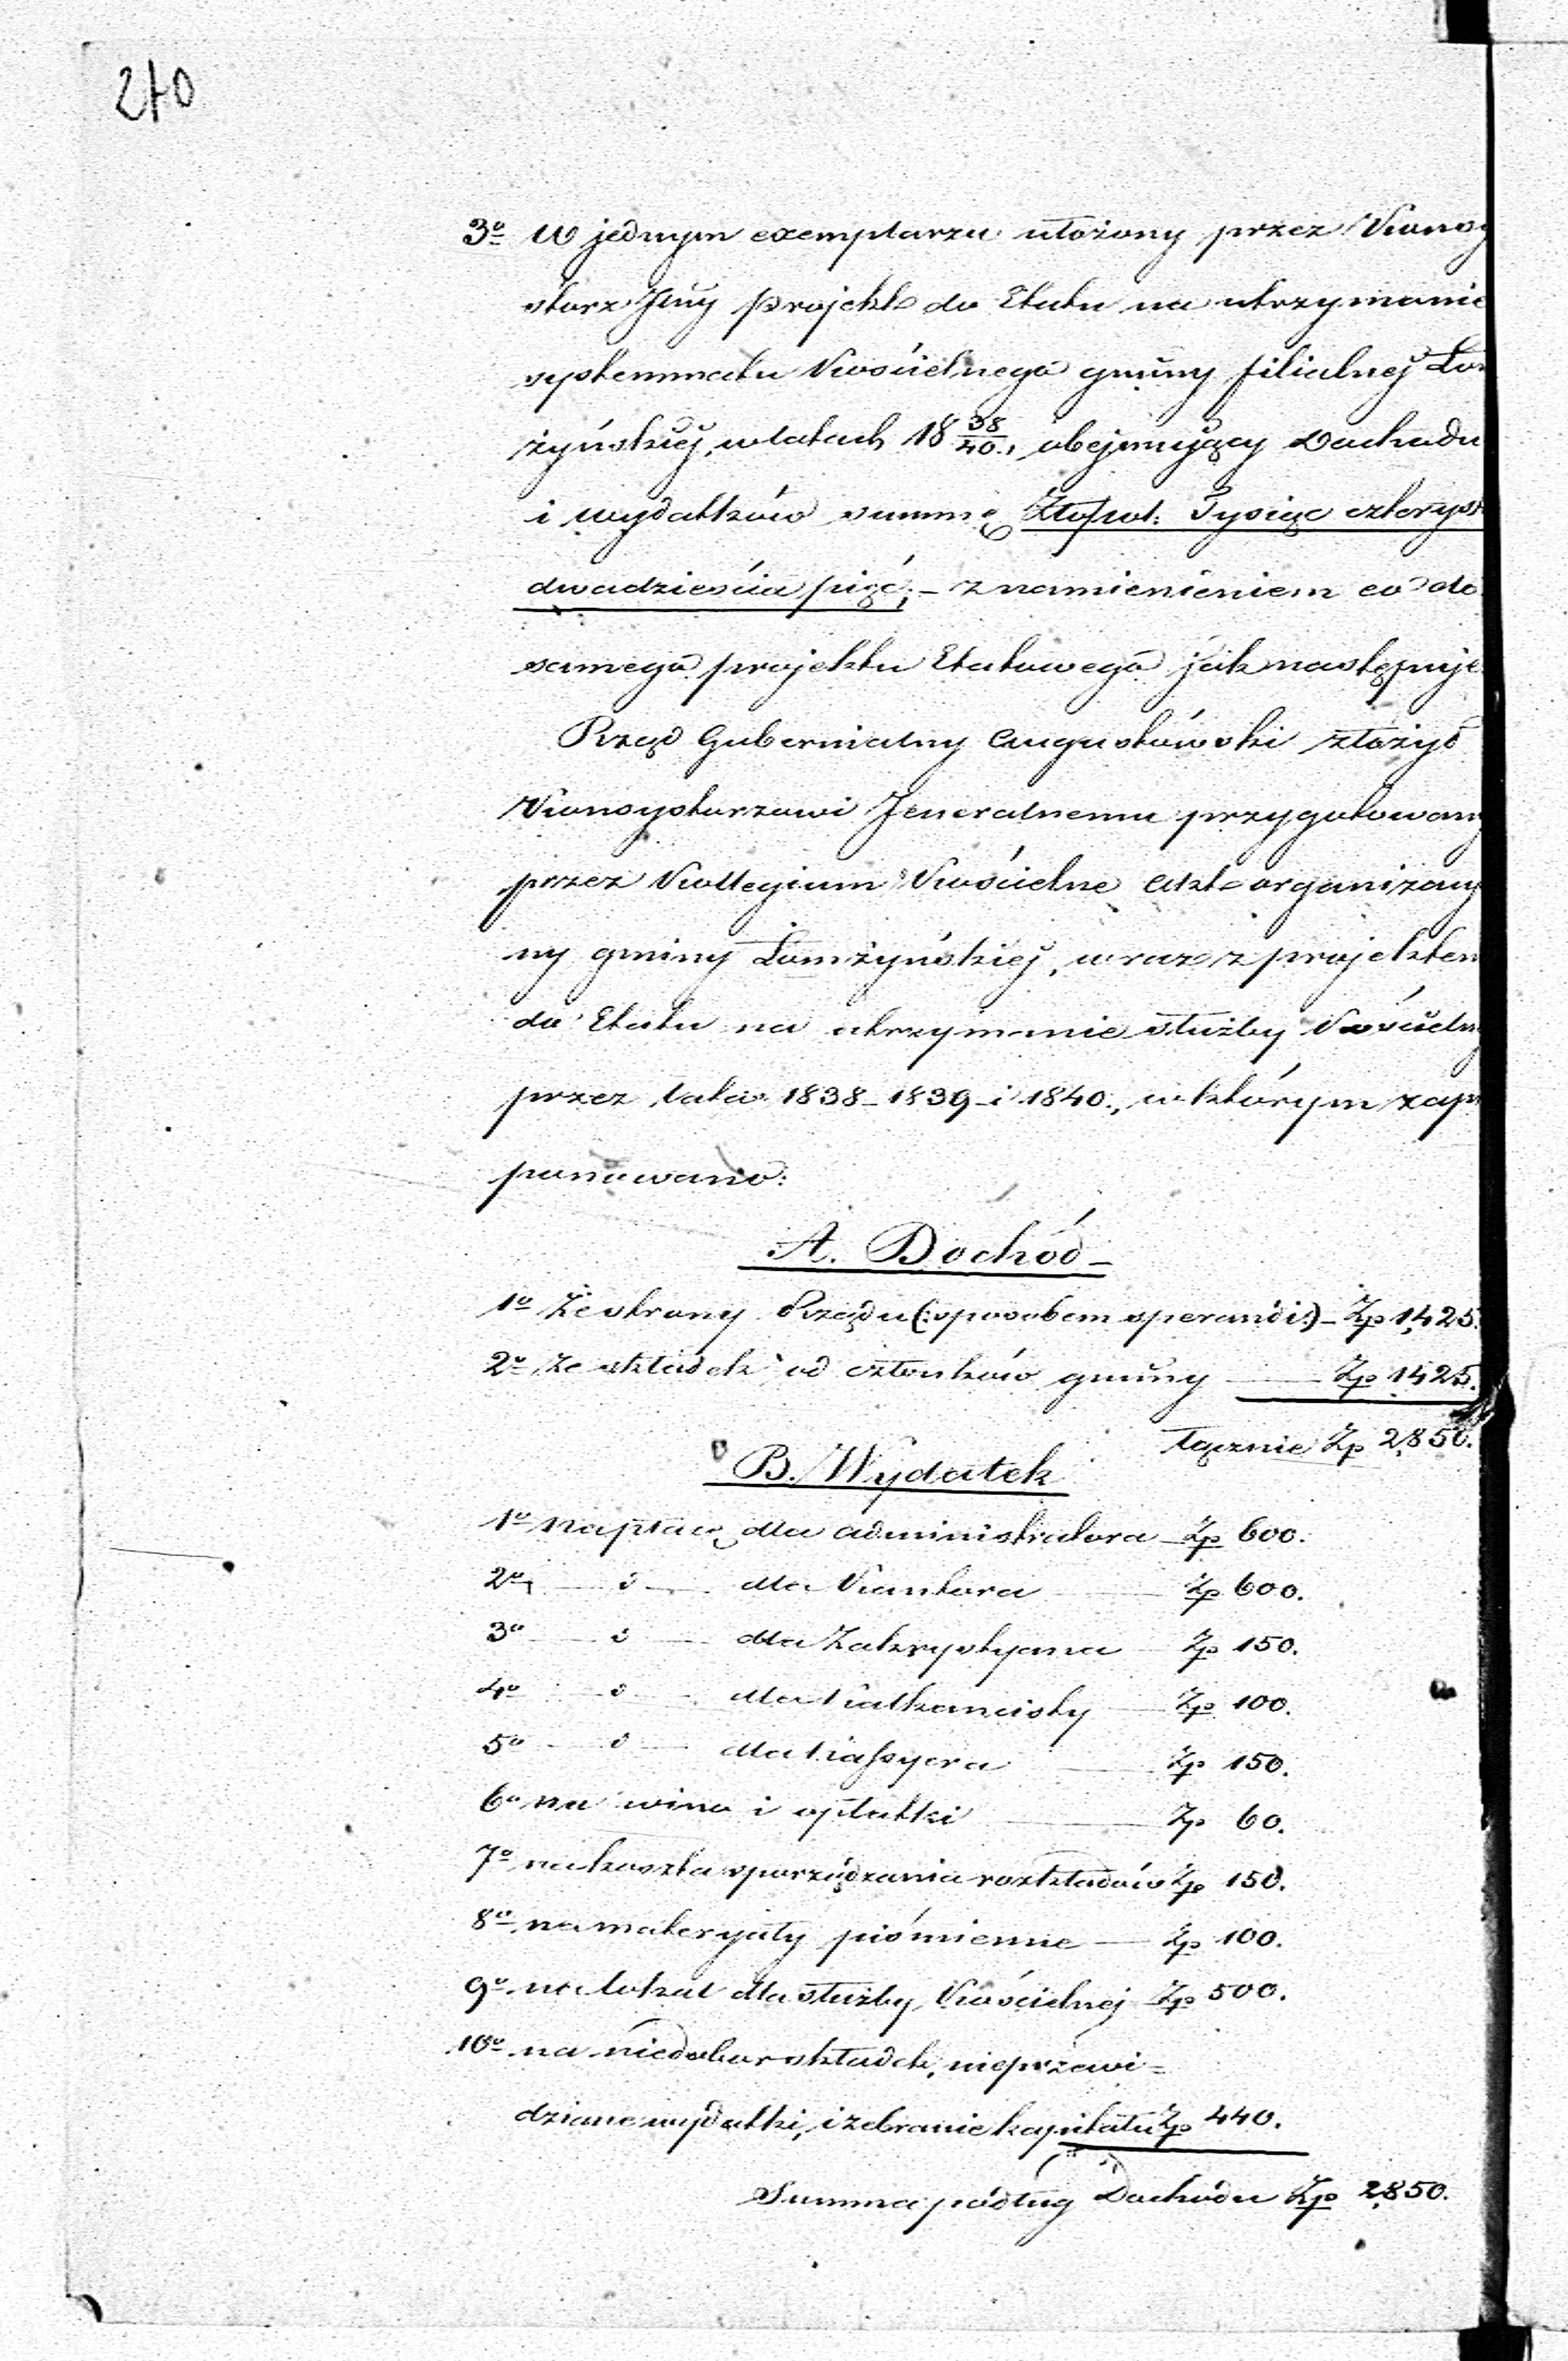 210
3o W jednym exemplarzu ułożony przez Konsy
storz Jlny projekt do Etatu na utrzymanie
systemmatu Kościelnego gminy filialnej Łom
żyńskiej, w latach 18 38/40., obejmujący Dochodu
i wydatków summę Złotpol: Tysiąc czteryst
dwadzieścia pięć; – z namienieniem co do
samego projektu Etatowego jak następuje
Rząd Gubernialny Augustowski złożył
Konsystorzowi Jeneralnemu przygotowany
przez Kollegium Kościelne Akt organizacyj
ny gminy Łomżyńskiej, wraz z projektem
do Etatu na utrzymanie służby Kościeln
przez lata 1838 – 1839 – i 1840., w którym zapr
ponowano:
A. Dochód –
1o Ze strony Rządu (: sposobem sperandi :) – Zp 1,425.
2o Ze składek od członków gminy — Zp 1,425.
łącznie Zp 2,850.
B. Wydatek
1o na płacę dla administratora – Zp 600.
2o — d — dla Kantora — Zp 600.
3o — d — dla Zakrystyana – Zp 150.
4o — d — dla Kalkancisty — Zp 100.
5o — d — dla Kassyera — Zp 150.
6o na wino i opłatki — Zp 60.
7o na koszta sporządzania rozkładów Zp 150.
8o na materyały piśmienne — Zp 100.
9o na lokal dla służby Kościelnej Zp 500.
10o na niedobor składek, nieprzewi=
dziane wydatki, i zebranie kapitału Zp 440.
Summa podług Dochodu Zp 2,850.